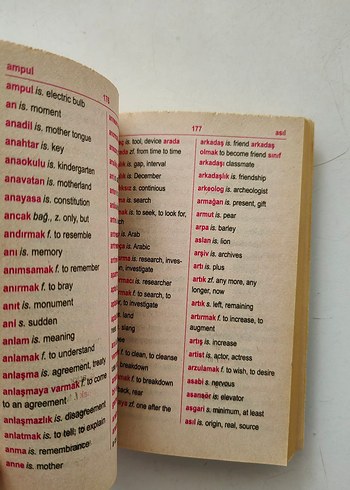 ampul
176
ampul is. electric bulb
an is. moment
anadil is. mother tongue
anahtar is. key
anaokulu is. kindergarten
anavatan is. motherland
anayasa is. constitution
ancak bağ., z. only, but
andırmak f. to resemble
anı is. memory
anımsamak f. to remember
anırmak f. to bray
anıt is. monument
ani s. sudden
anlam is. meaning
anlamak f. to understand
anlaşma is. agreement, treaty
anlaşmaya varmak f. to come
to an agreement
anlaşmazlık is. disagreement
anlatmak is. to tell; to explain
anma is. remembrance
anne is. mother
177
asıl
is. tool, device arada
zf. from time to time
is. gap, interval
is. December
s. continious
is. search
is. to seek, to look for,
is. Arab
is. Arabic
is. research, inves-
investigate
is. researcher
f. to search, to
to investigate
land
slang
f. to clean, to cleanse
breakdown
f. to breakdown
back, rear
zf. one after the
arkadaş is. friend arkadaş
olmak to become friend sınıf
arkadaşı classmate
arkadaşlık is. friendship
arkeolog is. archeologist
armağan is. present, gift
armut is. pear
arpa is. barley
aslan is. lion
arşiv is. archives
artı is. plus
artık zf. any more, any
longer, now
artık s. left, remaining
artırmak f. to increase, to
augment
artış is. increase
artist is. actor, actress
arzulamak f. to wish, to desire
asabi s. nervous
asansör is. elevator
asgari s. minimum, at least
asıl is. origin, real, source